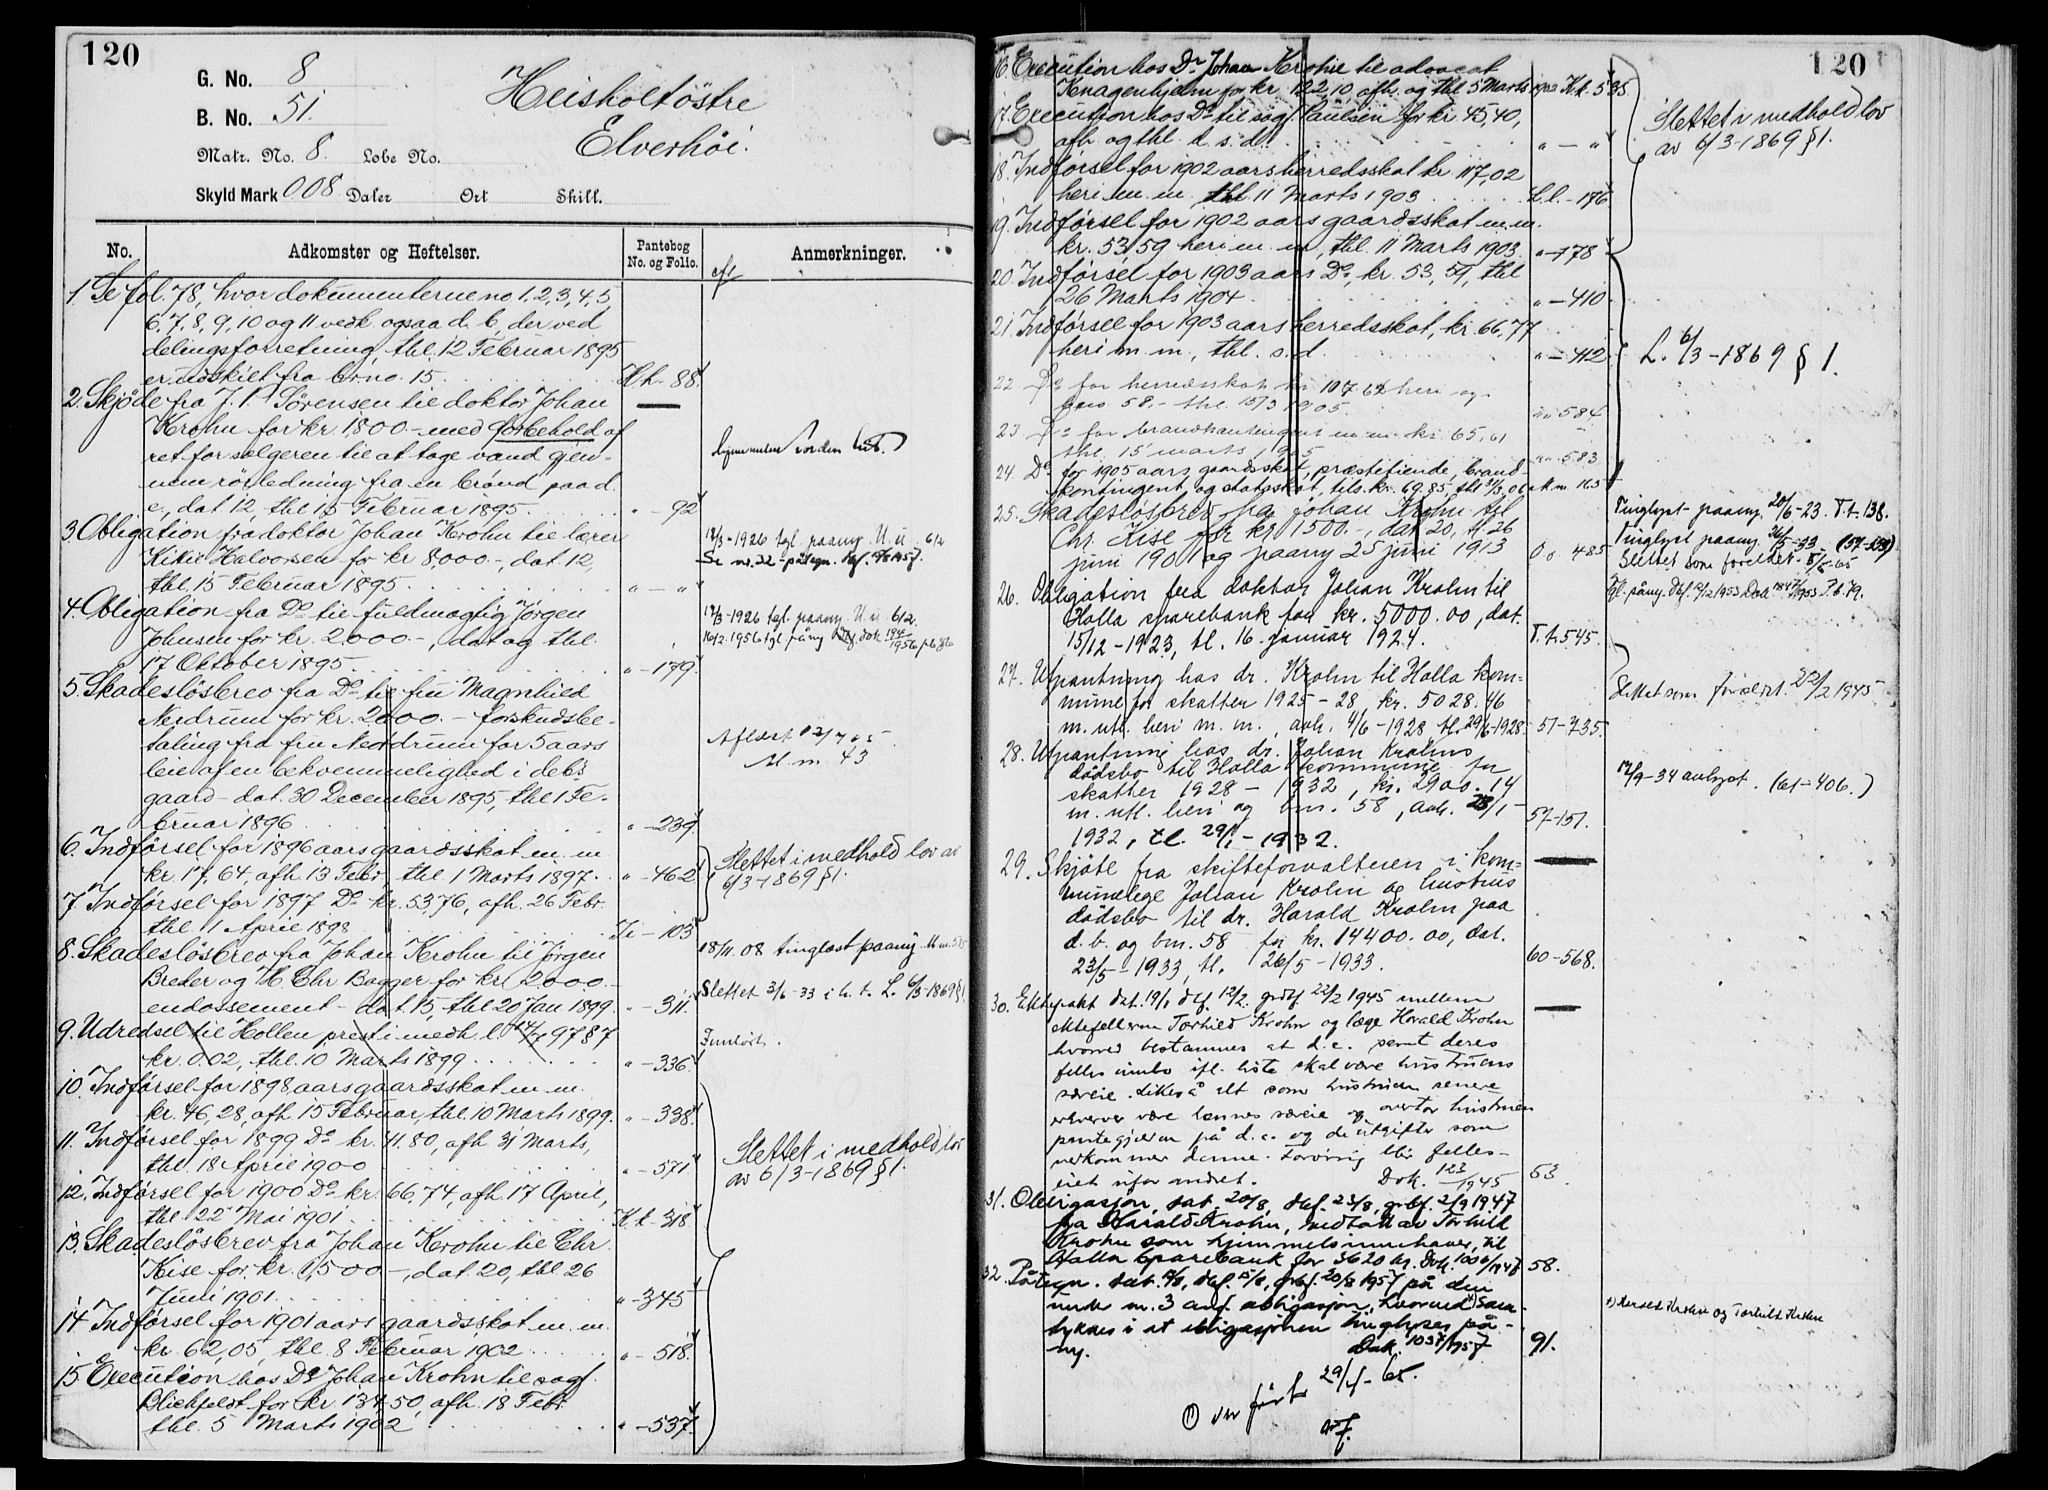 120
G. No. 8
B. No. 51.
Matr. No. 8. Løbe No.
Skyld Mark 0 08 Daler Ort Skill.
Heisholtöstre
Elverhöi.
No. Adkomster og Heftelser. Pantebog No. og Folio. Anmerkninger.
1. Se fol. 78, hvor dokumenterne no 1, 2, 3, 4, 5,
6, 7, 8, 9, 10 og 11 vedk. ogsaa d. b, der ved
delingsforretning, thl. 12 Februar 1895
er udskilt fra br.no. 15. H h - 88.
2. Skjöde fra J. P. Sörensen til doktor Johan
Krohn for kr 1,800.- med forbehold af
ret for sælgeren til at tage vand gjen-
nem rörledning fra en brönd paa d.
e., dat 12, thl. 15 Februar 1895. " - 92
3. Obligation fra doktor Johan Krohn til lærer
Kittil Halvorsen for kr 8,000.-, dat. 12,
thl. 15 Februar 1895. " - "
12/3-1926 tgl. paany. U. u. 612
Se nr. 32 - påtegn.
4. Obligation fra Do til fuldmægtig Jörgen
Johnsen for kr. 2000.-, dat og thl.
17 Oktober 1895. " - 179
12/3-1926 tgl. paany U. u 612.
5. Skadeslösbrev fra Do til fru Magnhild
Nerdrum for kr. 2000.- forskudsbe-
taling fra fru Nerdrum for 5 aars
leie af en bekvemmelighed i deb's
gaard - dat. 30 December 1895, thl. 1 Fe-
bruar 1896 " - 239
Aflæst 12/7 05
M. m. 43
6. Indförsel for 1896 aars gaardsskat m. m.
kr. 17,64, afh. 13 Febr. thl. 1 Marts 1897. " - 462
Slettet i medhold lov av
6/3-1869 § 1.
7. Indförsel for 1897 Do kr. 53,76, afh. 26 Febr.
thl. 1 April 1898 Ii - 103
8. Skadeslösbrev fra Johan Krohn til Jörgen
Breder og H. Chr Bagger for kr 2000.-
endossement - dat. 15, thl. 20 Jan 1899. " - 311.
18/11. 08 tinglæst paany M m. 585
Slettet 3/6-33 i h. t. L. 6/3-1869 § 1.
9. Udredsel til Hollen prest i medh. l. 14/7 97 87
kr. 0.02, thl. 10 Marts 1899 " - 336.
10. Indförsel for 1898 aars gaardsskat m. m.
kr. 46,28, afh. 15 Februar, thl. 10 Marts 1899. " - 338.
11. Indförsel for 1899 Do kr. 41.80, afh. 31 Marts,
thl. 18 April 1900 " - 571
Slettet i medhold lov
av 6/3-1869 § 1.
12. Indförsel for 1900 Do kr. 66,74, afh. 17 April,
thl. 22 Mai 1901 K.k - 318
13. Skadeslösbrev fra Johan Krohn til Chr.
Kise for kr. 1,500.-, dat. 20, thl. 26
Juni 1901 " - 345
14. Indförsel for 1901 aars gaardsskat m. m.
kr. 62,05 thl. 8 Februar 1902 " - 518.
15. Execution hos Dr Johan Krohn til sagf.
Blichfeldt for kr. 134,50, afh. 18 Febr.
thl. 5 Marts 1902 " - 537.
120
16. Execution hos Dr Johan Krohn til advocat
Knagenhjelm for kr. 122,10 afh. og thl. 5 Marts 1902 K.k. 535
17. Execution hos Do til sagf. Paulsen for kr. 45,40,
afh. og thl. d. s. d. " - "
Slettet i medhold lov
av 6/3-1869 § 1.
18. Indförsel for 1902 aars herredsskat kr. 117,02
heri m. m, thl. 11 Marts 1903 L.l. - 176
19. Indförsel for 1902 aars gaardsskat m.m.
kr. 53,59 heri m. m, thl. 11 Marts 1903. " - 178
20. Indförsel for 1903 aars Do, kr. 53,59, thl.
26 Marts 1904 " - 410
21. Indförsel for 1903 aars herredsskat, kr. 66,77
heri m. m., thl. s. d. " - 412.
L. 6/3-1869 § 1.
22. Do for herredsskat kr 107.62 heri og
58,- thl. 15/3 1905. 584
23. Do for brandkontingent m. m. kr. 65,61
thl. 15 marts 1905 583
24. Do for 1905 aars gaardsskat, præstetiende, brand-
kontingent, og statsskat, tils. kr. 69.85, thl 31/3. 06 M m. 165
25. Skadeslösbrev fra Johan Krohn til
Chr. Kise for kr 1500.-, dat 20, tl. 26
juni 1901 og paany 25 juni 1913 O o 485
Tinglyst paany. 20/6-23. T.t. 138.
Tinglyst paany. 26/5-33
Slettet som foreldet.
26. Obligation fra doktor Johan Krohn til
Holla sparebank for kr. 5000.00, dat.
15/12-1923, tl. 16. januar 1924. T.t. 545.
27. Utpantning hos dr. Krohn til Holla kom-
mune for skatter 1925-28, kr. 5028.46
m. utl. heri m. m., avh. 4/6-1928 tl. 29/6-1928. 51-735.
Slettet som foreldet. 22/2 1945
28. Utpantning hos dr. Johan Krohns
dödsbo til Holla kommune for
skatter 1928-1932, kr. 2900.14
m. utl. heri og bnr. 58, avh. 28/1-
1932, tl. 29/1-1932. 57-151.
12/9-34 avlyst. (61-406.)
29. Skjöte fra skifteforvalteren i kom-
munelege Johan Krohn og hustrus
dödsbo til dr. Harald Krohn paa
d. b. og bnr. 58 for kr. 14400.00, dat.
23/5-1933, tl. 26/5-1933. 60-568.
30. Ektepakt dat. 19/1 dgf. 12/2. grbf. 22/2 1945 mellem
ektefellerne Torhild Krohn og læge Harald Krohn
hvorved bestemmes at d.e. samt deres
felles innbo ifl. liste skal være hustruens
særeie. Likeså alt som hustruen senere
erhverver være hennes særeie og overtar hustruen
pantegjelden på d.e. og de utgifter som
vedkommer denne. Forövrig blir felles-
eiet uforandret. Dok. 123/1945 53.
31. Obligasjon, dat. 20/8, dgf. 23/8, grbf. 2/9 1947
fra Harald Krohn, vedtatt av Torhild
Krohn som hjemmelsinnehaver, til
Holla Sparebank for 3620 kr. Dok. 1006/1947 58.
32. Påtegn. dat. dgf. grbf. 20/8 1957 på den
under nr. 3 anf. obligasjon, hvorved 1) sam-
tykkes i at obligasjonen tinglyses på-
ny. Dok. 1037/1957 91.
1) Harald Krohn og Torhild Krohn